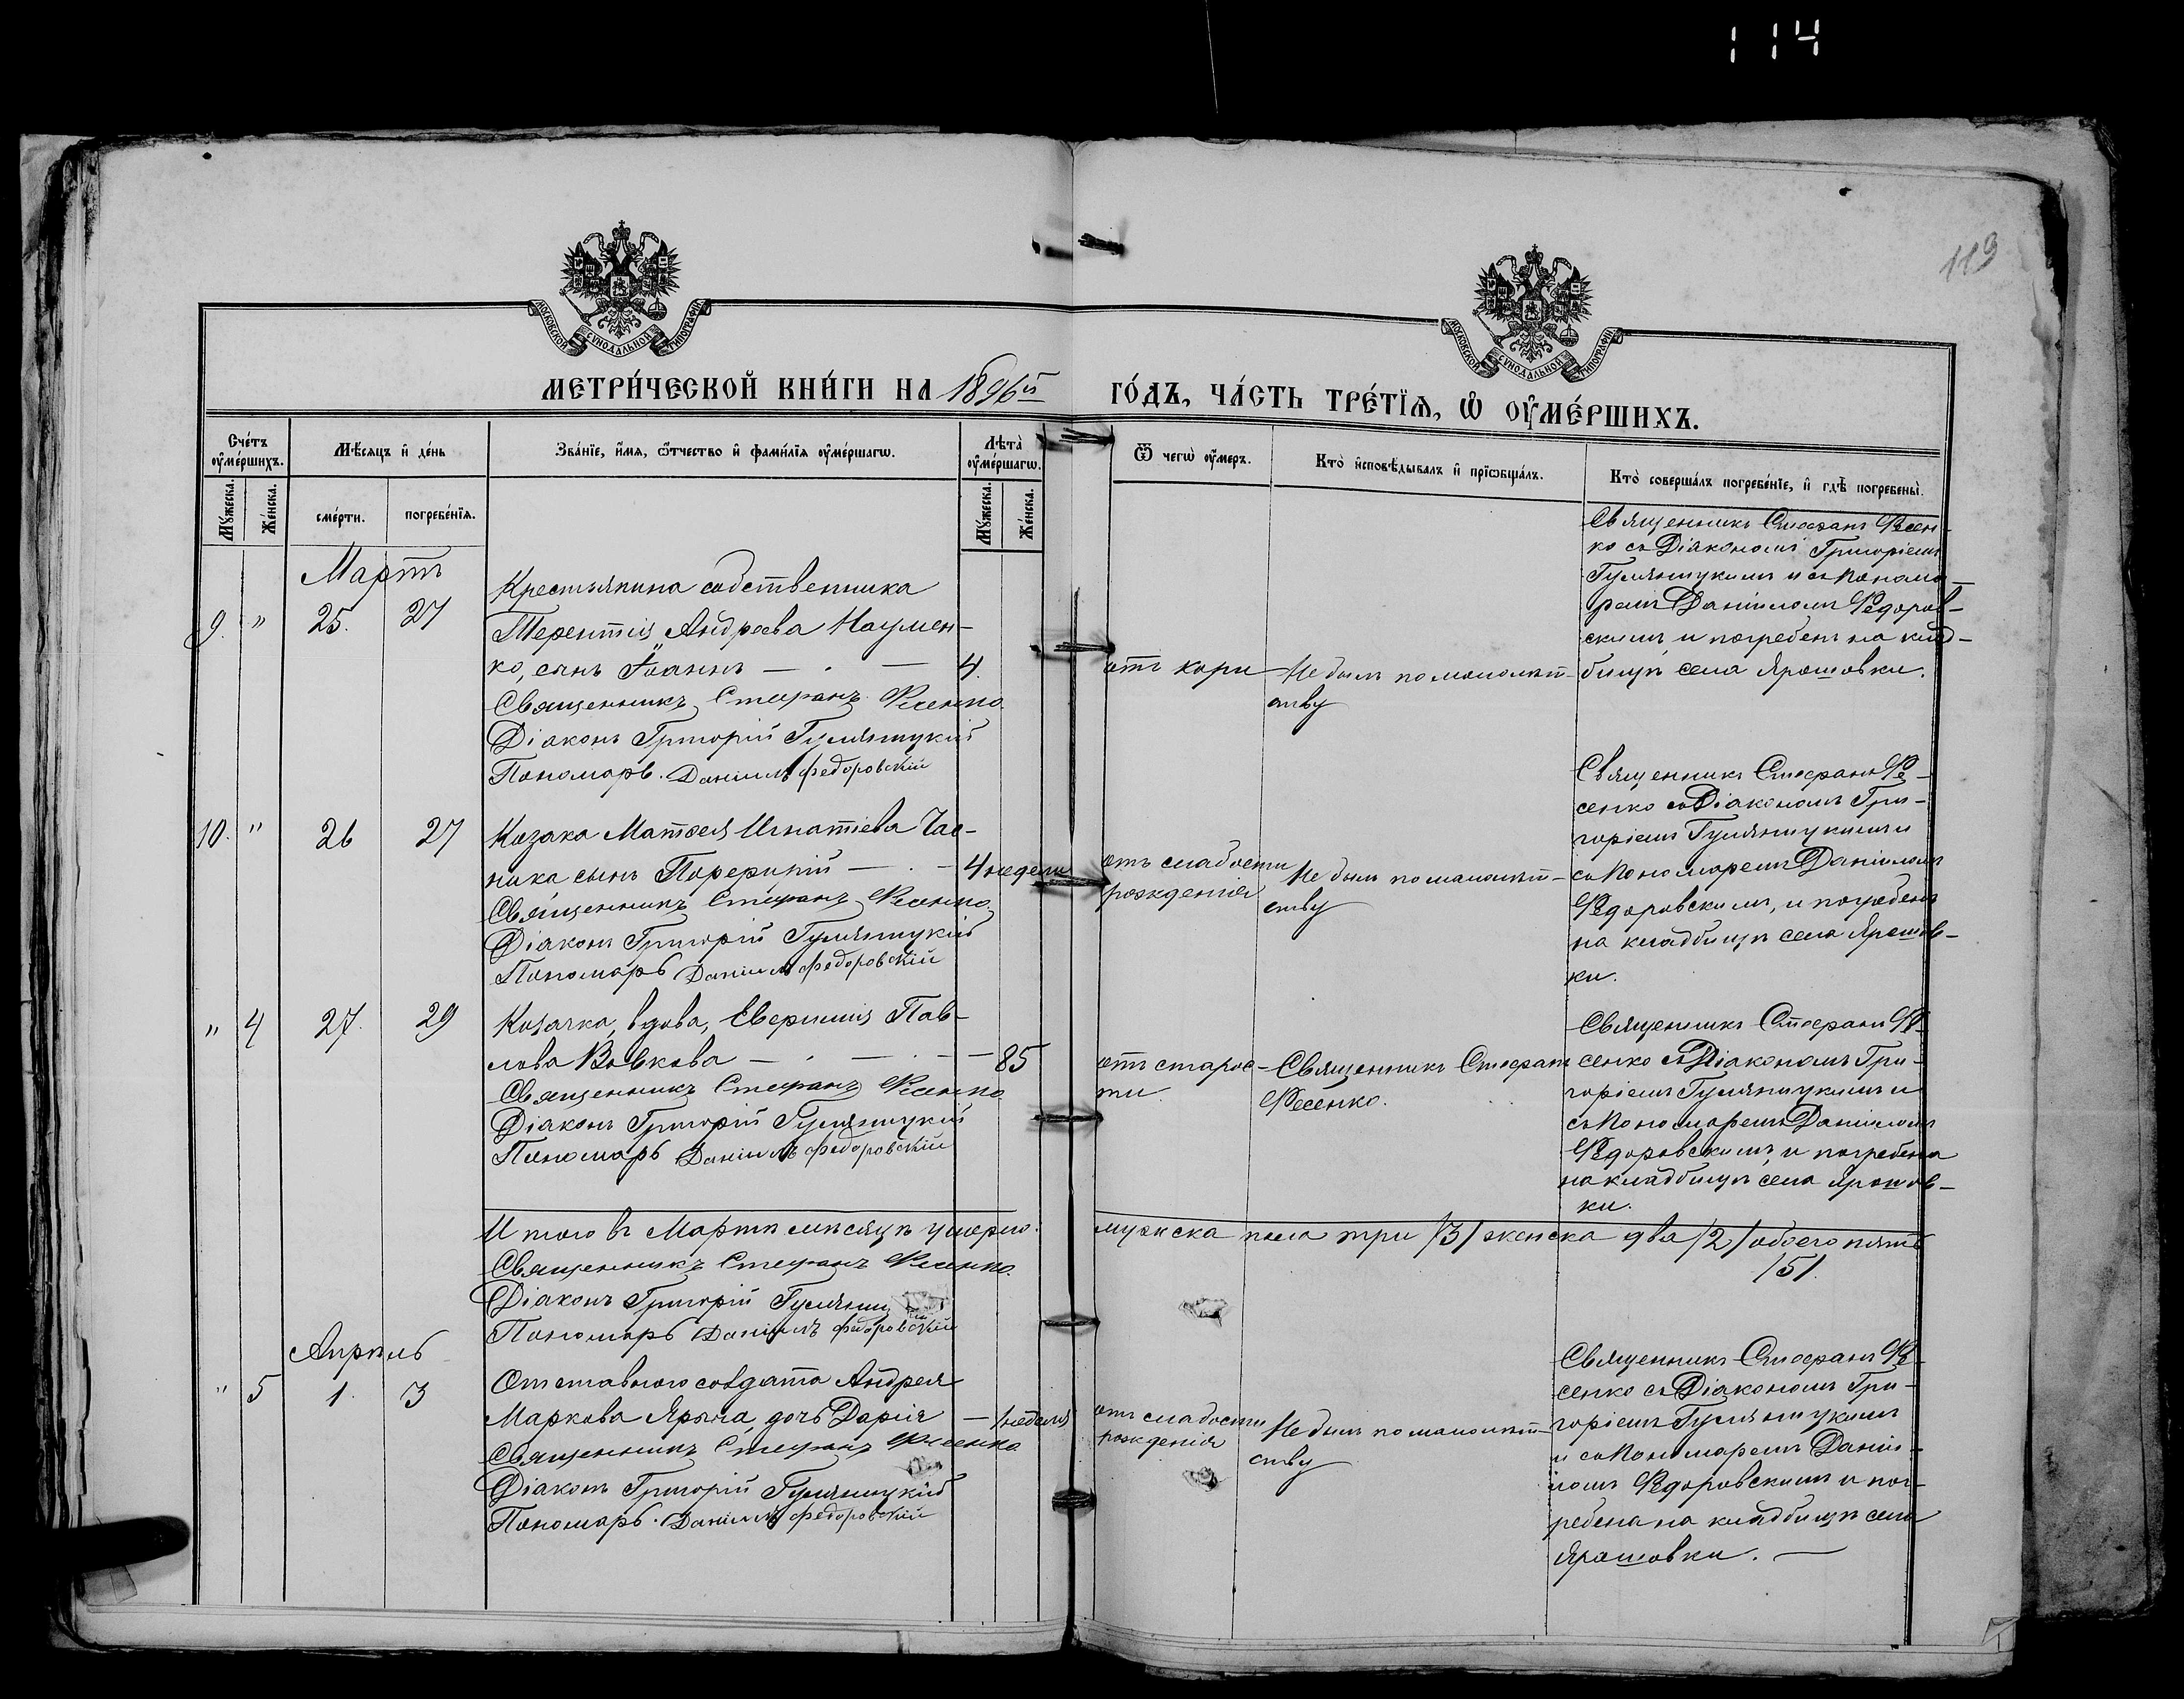 114
119
МОСКОВСКОЙ СѴНОДАЛЬНОЙ ТИПОГРАФІИ
МОСКОВСКОЙ СѴНОДАЛЬНОЙ ТИПОГРАФІИ
МЕТРИ́ЧЕСКОЙ КНИ́ГИ НА 1896й ГО́ДЪ, ЧА́СТЬ ТРЕ́ТІѦ, Ѡ ОУ҆МЕ́РШИХЪ.
Сче́тъ оу҆ме́ршихъ.
Мꙋ́жеска.
Же́нска.
Мѣ́сяцъ и҆ де́нь
сме́рти.
погребе́нїя.
Зва́нїе, и҆́мя, ѻ҆́тчество и҆ фами́лїя оу҆ме́ршагѡ.
Лѣ́та оу҆ме́ршагѡ.
Мꙋ́жеска.
Же́нска.
Ѿ чегѡ̀ оу҆́меръ.
Кто̀ и҆сповѣ́дывалъ и҆ прїѡбща́лъ.
Кто̀ соверша́лъ погребе́нїе, и҆ гдѣ̀ погребены̀.
Мартъ
9. " 25. 27
Крестьянина собственника
Терентія Андреева Наумен-
ко, сынъ Іоаннъ — . — 4.
Священникъ Стефанъ Фесенко
Діаконъ Григорій Гуляницкій
Пономарь. Даніилъ Федоровскій
отъ кори
Не былъ по малолѣт-
ству
Священникъ Стефанъ Фесен-
ко съ Діакономъ Григоріемъ
Гуляницкимъ и съ Понама-
ремъ Даніиломъ Федоров-
скимъ и погребенъ на клад-
бищѣ села Ярошовки.
10. " 26 27
Козака Матѳея Игнатіева Час-
ника сынъ Порфирій — . — 4 недели
Священникъ Стефанъ Фесенко.
Діаконъ Григорій Гуляницкій
Пономарь Даніилъ Федоровскій
отъ слабости
рожденія
Не былъ по малолѣт-
ству
Священникъ Стефанъ Фе-
сенко съ Діакономъ Гри-
горіемъ Гуляницкимъ и
съ Пономаремъ Даніиломъ
Федоровскимъ, и погребенъ
на кладбищѣ села Ярошов-
ки.
" 4 27. 29
Козачка, вдова, Евфимія Пав-
лова Вовкова — . — . — — 85
Священникъ Стефанъ Фесенко
Діаконъ Григорій Гуляницкій
Пономарь Даніилъ Федоровскій
отъ старос-
ти
Священникъ Стефанъ
Фесенко.
Священникъ Стефанъ Фе-
сенко съ Діакономъ Гри-
горіемъ Гуляницкимъ и
съ Пономаремъ Даніиломъ
Федоровскимъ, и погребена
на кладбищѣ села Ярошов-
ки.
Итого въ Мартѣ мѣсяцѣ умерло. мужеска пола три /3/ женска два /2/ обоего пять
/5/.
Священникъ Стефанъ Фесенко.
Діаконъ Григорій
Пономарь Даніилъ Федоровскій
Апрѣль
" 5 1. 3
Отставного солдата Андрея
Маркова Ярыча, дочь Дарія — 1 неделя
Священникъ Стефанъ Фесенко
Діаконъ Григорій Гуляницкій
Пономарь. Даніилъ Федоровскій
отъ слабости
рожденія
Не былъ по малолѣт-
ству
Священникъ Стефанъ Фе-
сенко съ Діакономъ Гри-
горіемъ Гуляницкимъ
и съ Пономаремъ Даніи-
ломъ Федоровскимъ и пог-
ребена на кладбищѣ села
Ярошовки. —